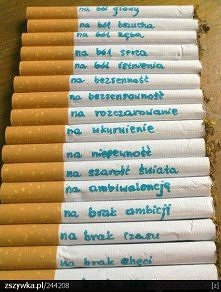 na ból głowy
na ból brzucha
na ból zęba
na ból serca
na ból istnienia
na bezsenność
na bezsensowność
na rozczarowanie
na wkurwienie
na niepewność
na szarość świata
na ambiwalencję
na brak ambicji
na brak czasu
na brak chęci
zszywka.pl/244208
[z]